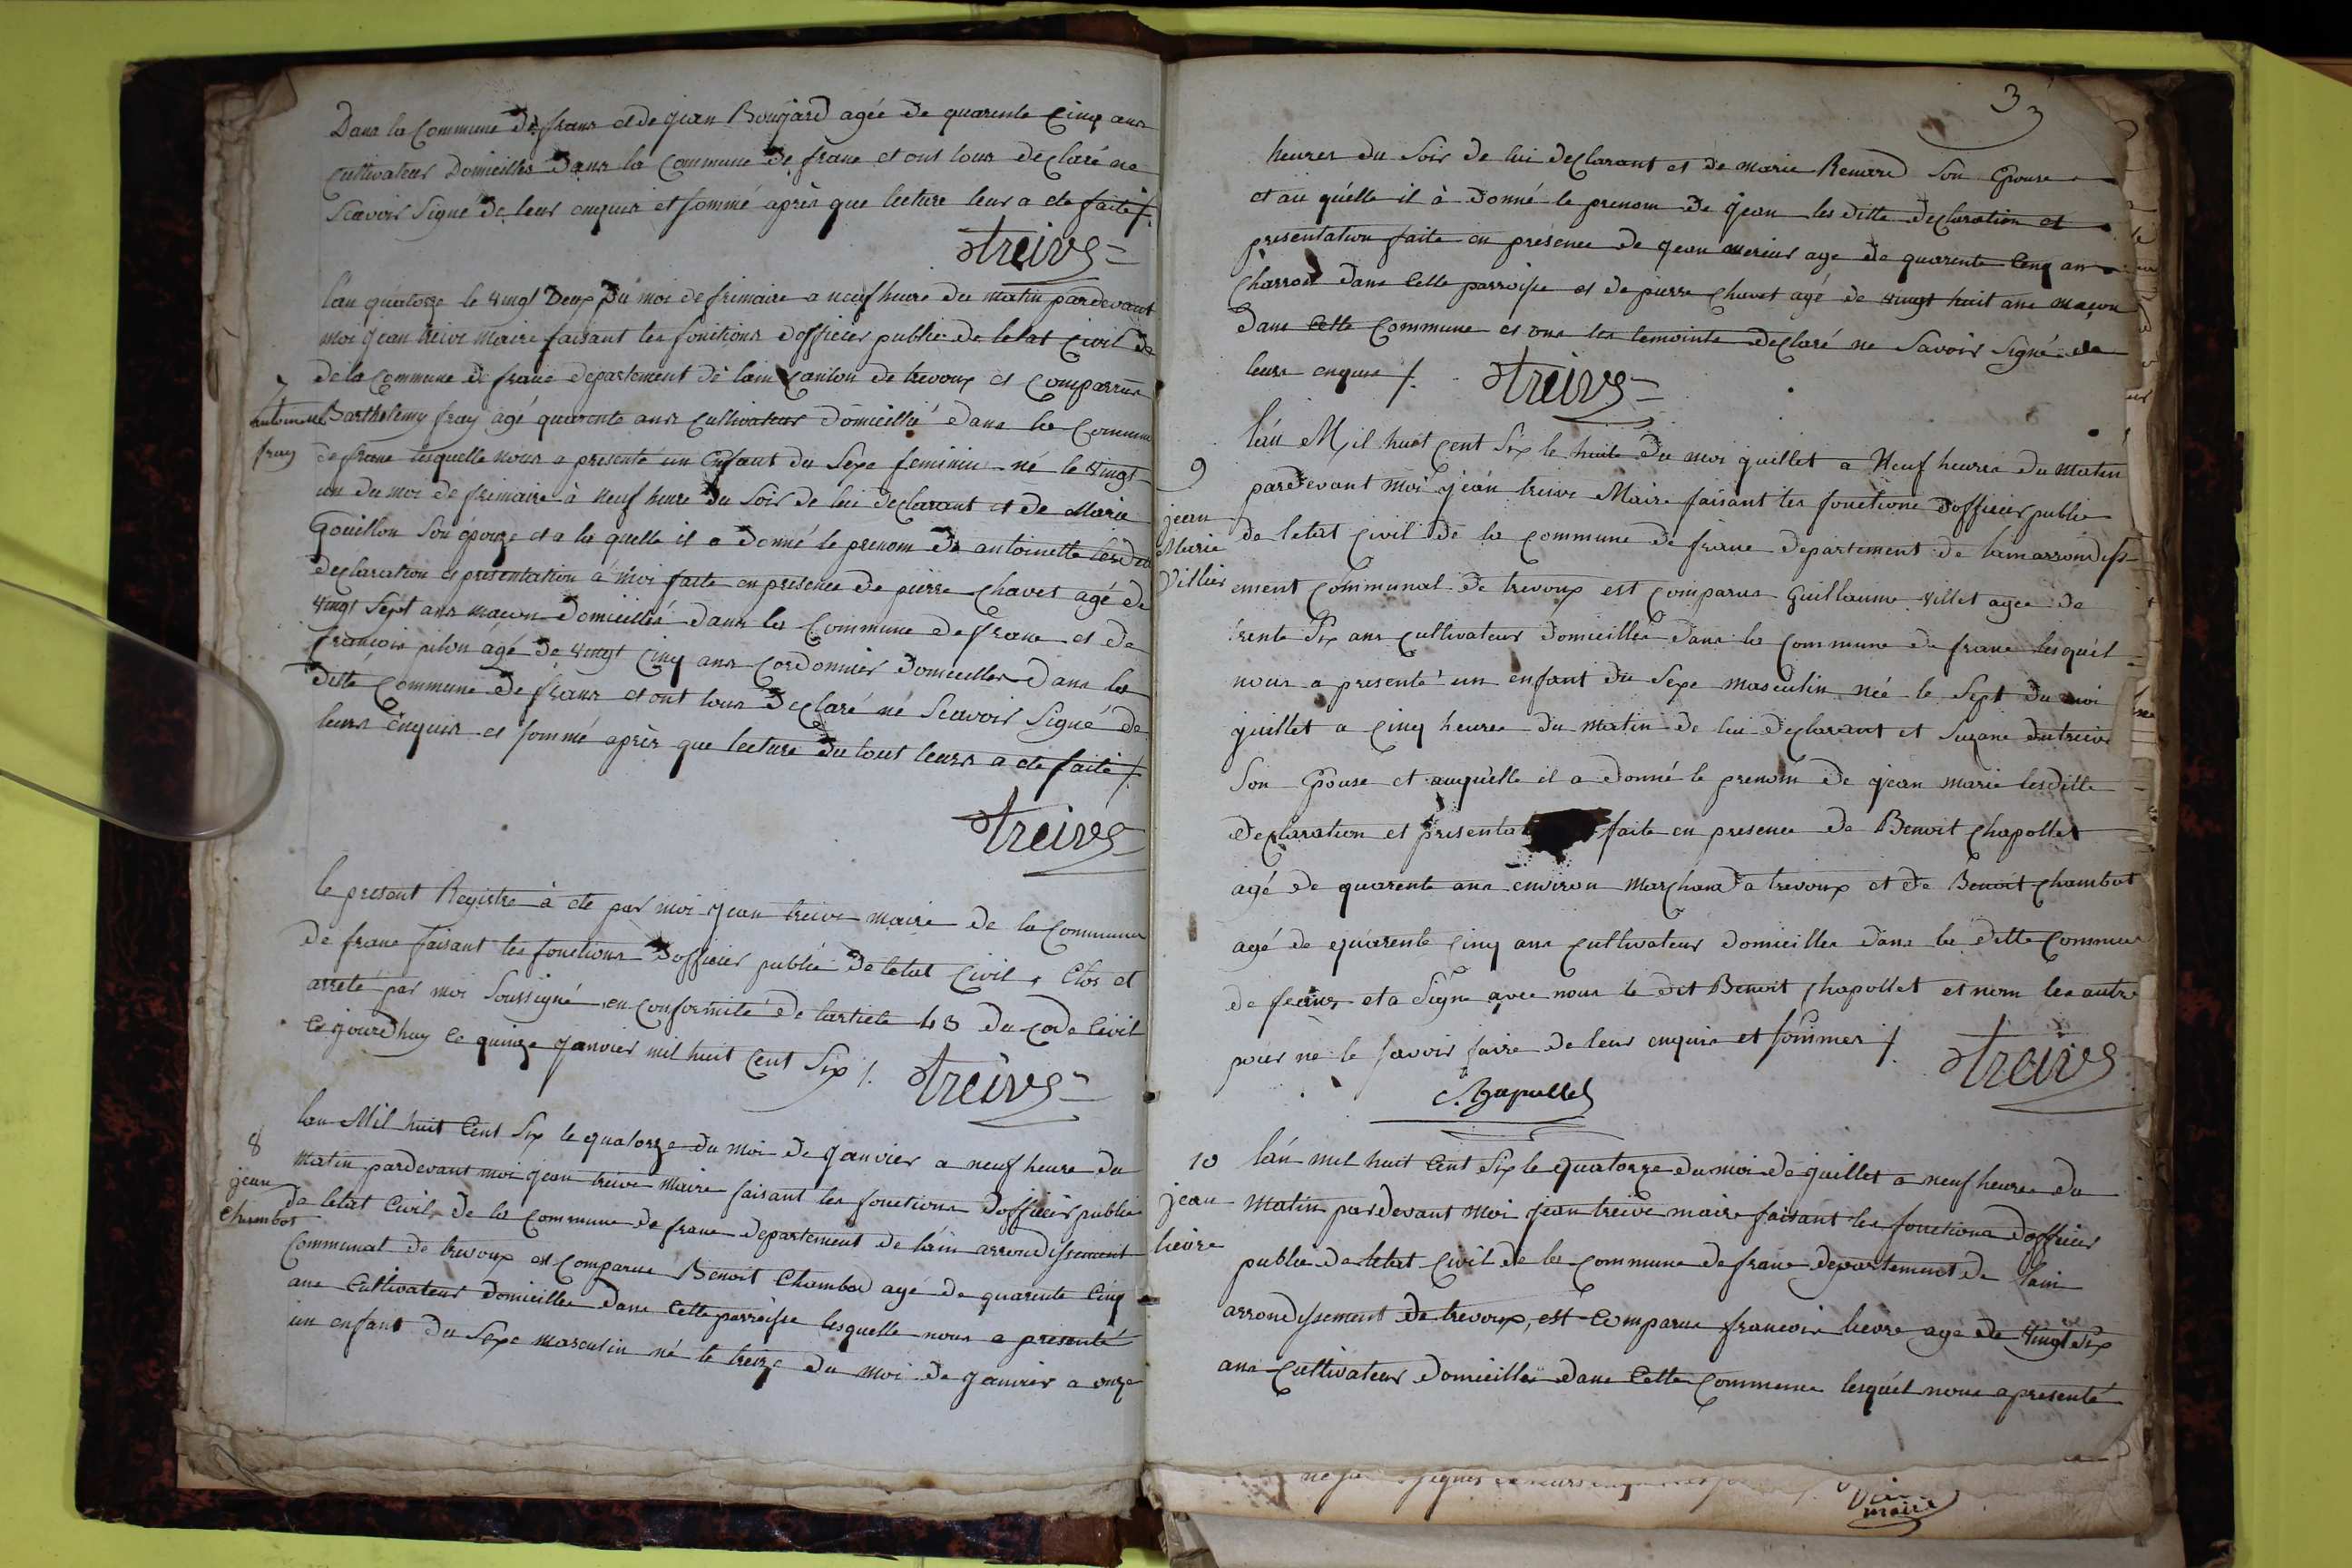 Dans la Commune de frans et de jean Boujard agée de quarente Cinq ans
Cultivateur Domicilles dans la Commune de frans et ont tous declaré ne
Scavoir Signé de leur enquis et sommé après que lecture leur a ete faite /.
treive
lan quatorze le vingt Deux du moi de frimaire a neuf heure du matin pardevant
moi jean treive maire faisant les fonctions d'officier public de letat Civil de
de la Commune de frans departement de lain Canton de trevoux et Comparus
7
antoinette
fray
Barthelemy fray agé quarente ans Cultivateur domicillié dans la Commune
de frans lesquelle nous a presenté un Enfant du Sexe feminin né le vingt
un du moi de frimaire à neuf heure du Soir de lui declarant et de Marie
Gouillon Son épouze et a la quelle il a donné le prenom de antoinette lesdit
declaration et presentation a moi faite en presence de pierre Chavet agé de
vingt Sept ans maçon domicillié dans la Commune de frans et de
françois pilon agé de vingt Cinq ans Cordonnier domicillier dans la
ditte Commune de frans et ont tous declaré né Scavoir Signé de
leurs enquis et sommé après que lecture du tout leurs a ete faite /.
treive
le present Registre à ete par moi jean treive maire de la Commune
de frans faisant les fonctions d'officier public de letat Civil, Clos et
arreté par moi Soussigné en Conformité de lartiele 43 du Code Civil
Cejourdhuy le quinze janvier mil huit Cent Six /. treive
8
jean
Chambot
lan Mil huit Cent Six le quatorze du moi de janvier a neuf heure du
Matin pardevant moi jean treive Maire faisant les fonctions d'officier public
de letat Civil de la Commune de frans departement de láin arrondissement
Communal de trevoux est Comparus Benoit Chambod agé de quarente Cinq
ans Cultivateur domicillés dans Cette parroisse lesquelle nous a presenté
un enfant du Sexe masculin né le treize du moi de janvier a onze
33
heures du Soir de lui declarant et de marie Renard Son Epouse
et au quélle il à donné le prenom de jean les ditte declaration et
presentation faite en presence de jean age de quarente Cinq an
Charron dans Cette parroisse et de pierre Chavet agé de vingt huit ans maçon
dans Cette Commune et ons les temointe declaré ne Savoir Signé de
leurs enquis /. treive
9
jean
Marie
Villier
lán Mil huit Cent Six le huit du moi juillet a Neuf heures du Matin
pardevant moi jeán treive Maire faisant les fonctions d'officier public
de letat Civil de la Commune de frans departement de lain arrondiss
ement Communal de trevoux est Comparus Guillaume villet agee de
trente Six ans Cultivateur domicillés dans la Commune de frans lesquél
nous a presenté un enfant du Sexe masculin née le Sept du moi
juillet a Cinq heures du matin de lui declarant et Suzane dutreive
Son Epouse et auquélle il a donné le prenom de jean marie lesditte
declaration et presenta faite en presence de Benoit Chapollet
agé de quarente ans environ Marchand a trevoux et de Benoit Chambot
agé de quarente Cinq ans Cultivateur domicillés dans la ditte Commune
de frans et a Signe avec nous le dit Benoit Chapollet et nom les autre
pour ne le savoir faire de leur enquis et sommer /. treive
10
jean
lievre
lán mil huit Cent Six le quatorze du moi de juillet a neuf heures du
Matin pardevant moi jean treive maire faisant les fonctions d'officier
public de letat Civil de la Commune de frans departement de lain
arrondissement de trevoux, est Comparus francois lievre age de vingt Six
ans Cultivateur domicillés dans Cette Commune lesquél nous a presenté
maire